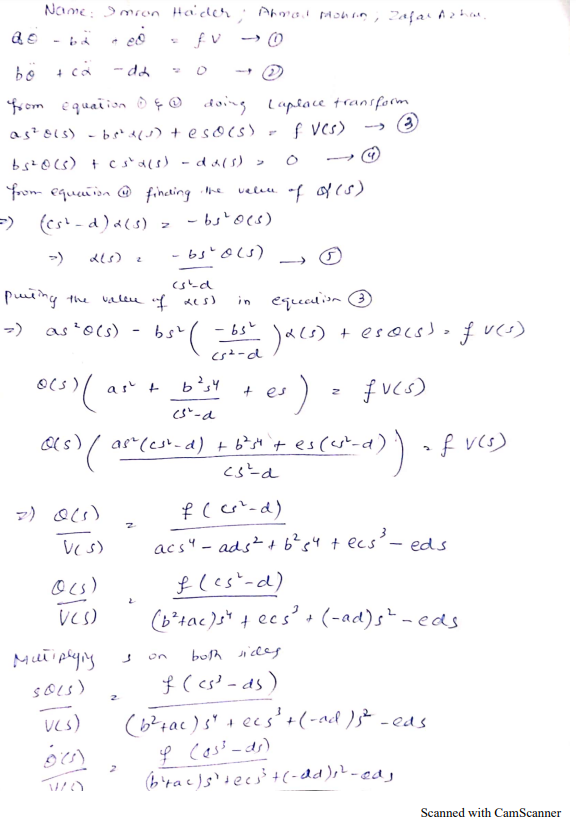 Name: Imran Haider, Ahmad Mohsin, Zafar Azhar.
aθ̈ - bα̈ + eθ̇ = fV → ①
bθ̈ + cα̈ - dα = 0 → ②
from equation ① & ② doing Laplace transform
as²θ(s) - bs²α(s) + esθ(s) = f V(s) → ③
bs²θ(s) + cs²α(s) - dα(s) = 0 → ④
from equation ④ finding the value of α(s)
=> (cs²-d)α(s) = -bs²θ(s)
=> α(s) = -bs²θ(s) / cs²-d → ⑤
puting the value of α(s) in equation ③
=> as²θ(s) - bs²( -bs² / cs²-d )α(s) + esθ(s) = f V(s)
θ(s)( as² + b²s⁴ / cs²-d + es ) = fV(s)
θ(s)( as²(cs²-d) + b²s⁴ + es(cs²-d) / cs²-d ) = f V(s)
=> θ(s) / V(s) = f(cs²-d) / acs⁴ - ads² + b²s⁴ + ecs³ - eds
θ(s) / V(s) = f(cs²-d) / (b²+ac)s⁴ + ecs³ + (-ad)s² - eds
Multiplying s on both sides
sθ(s) / V(s) = f(cs³-ds) / (b²+ac)s⁴ + ecs³ + (-ad)s² - eds
θ̇(s) / V(s) = f(cs³-ds) / (b²+ac)s⁴ + ecs³ + (-ad)s² - eds
Scanned with CamScanner